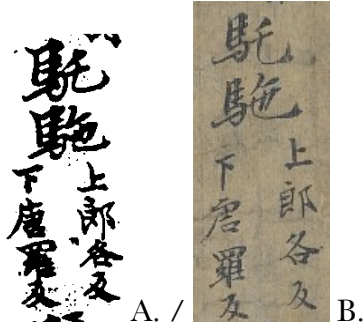 馲駞
上郎各反
下唐羅反
A. /
馲駞
上郎各反
下唐羅反
B.